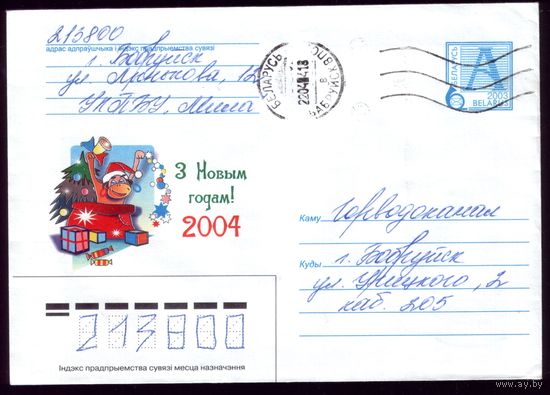 213800
адрас адпраўшчыка і індэкс прадпрыемства сувязі
г. Бобруйск
ул. Лынькова, 12
БЕЛАРУСЬ
2204 418
БАБРУЙСК
БЕЛАРУСЬ
A
2003
BELARUS
З Новым
годам!
2004
Каму Горводоканал
Куды г. Бобруйск
ул. Урицкого, 2
каб. 205
213800
Індэкс прадпрыемства сувязі месца назначэння
www.ay.by